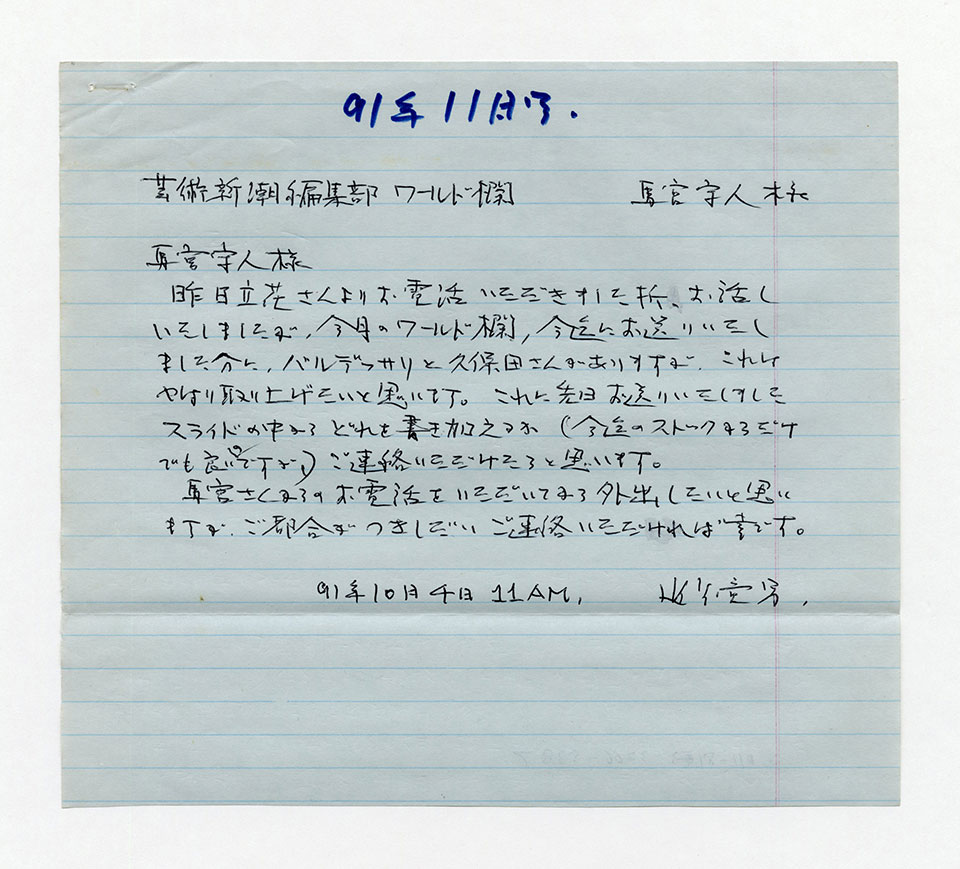 91年11月号.
芸術新潮編集部 ワールド欄 馬宮守人様
馬宮守人様
昨日立花さんよりお電話いただきました折、お話し
いたしましたが、今月のワールド欄、今迄にお送りいたし
ました分に、バルデッサリと久保田さんがありますが、これは
やはり取り上げたいと思います。これに先日お送りいたしました
スライドの中から どれを書き加えるか (今迄のストックからだけ
でも良いのですが、) ご連絡いただけたらと思います。
馬宮さんからのお電話をいただいてから外出したいと思い
ますが、ご都合がつきしだい ご連絡いただければ幸です。
91年10月4日 11AM,